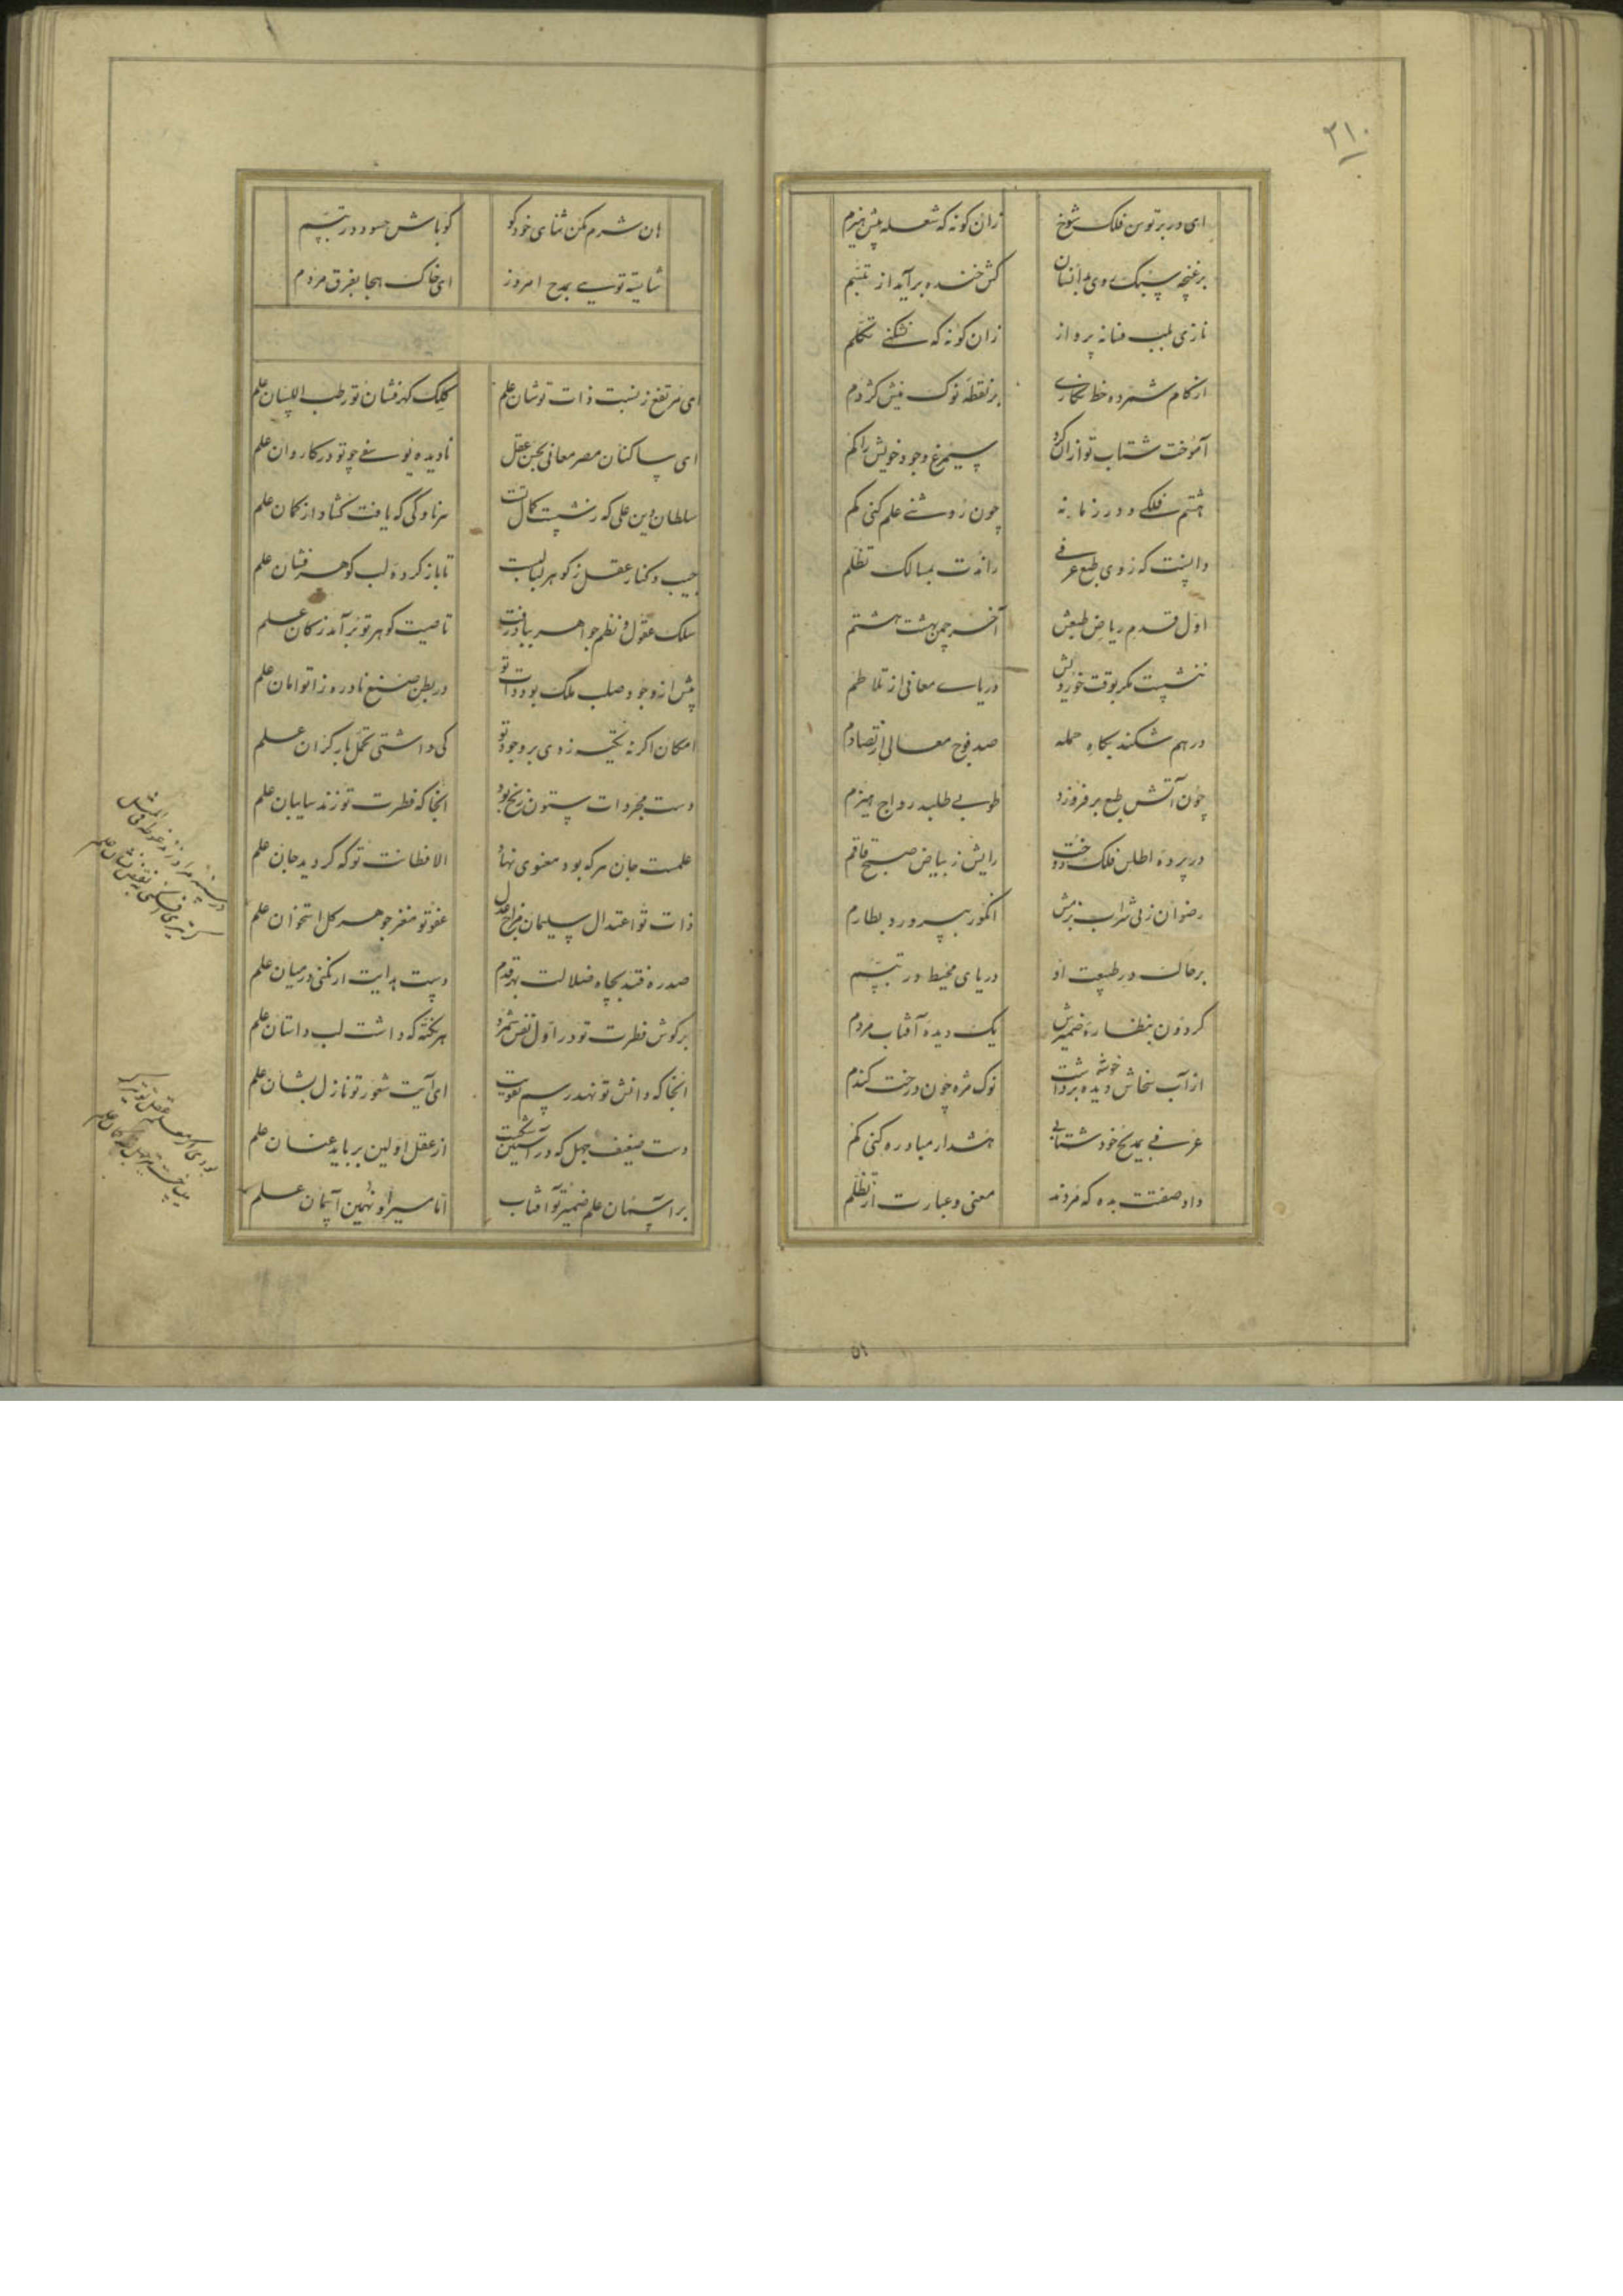 ۳۱۰
ای در بر توسن فلک شوخ زان گونه که شعله پیش هیزم
بر غنچه سبک وی بدانسان کش خنده برآید از تبسم
نازی بلب فسانه پرداز زان گونه که نشکنی تکلم
از کام شمرده خط نگاری بر نقطه نوک نیش کژدم
آموخت شتاب تو ازان کرد سیمرغ وجود خویش را گم
هشتم فلکی و در زمانه چون روشنی علم کنی گم
دانست که زوی طبع عرفی راندت بمسالک تظلم
اول قدم ریاض طبعش آخر چمن بهشت هشتم
ننشست مگر بوقت خوردش دریای معانی از تلاطم
درهم شکند بگاه حمله صد فوج معالی از تصادم
چون آتش طبع بر فروزد طوبی طلبد رواج هیزم
در پرده اطلس فلک دوخت رایش ز بیاض صبح قاقم
رضوان ز پی شراب بزمش انگور بپرورد بطارم
برخاک در طبیعت او دریای محیط در تیمم
گردون بنظاره ضمیرش یک دیده آفتاب مردم
از آب سخاش دیده برداشت خوشه نوک مژه چون درخت گندم
عرفی بمدیح خود شتابی هشدار مبادره کنی گم
داد صفتت بده که مردند معنی و عبارت از تظلم
هان شرم مکن ثنای خود گو گو باش حسود در تیمم
شایسته تویی بمدح امروز ای خاک هجا بفرق مردم
ای مرتفع ز نسبت ذات تو شان علم کلک گهرفشان تو رطب اللسان علم
ای ساکنان مصر معانی بحسن عقل نادیده یوسفی چو تو در کاروان علم
سلطان دین علی که ز شست کمال تست سر ناوکی که یافت گشاد از کمان علم
جیب و کنار عقل ز گوهر لبالبست تا باز کرده لب گوهر فشان علم
سلک عقول و نظم جواهر بباد رفت تا صیت گوهر تو برآمد ز کان علم
پیش از وجود صلب ملک بود ذات تو در بطن صنع نادره زا توامان علم
امکان اگر نه تکیه زدی بر وجود تو کی داشتی تحمل بار گران علم
دست مجردات ستون زنخ بود آنجا که فطرت تو زند سایبان علم
علمست جان هر که بود معنوی نهاد الا فطانت تو که گردید جان علم
ذات تو اعتدال سلیمان مزاج عدل عفو تو مغز جوهر کل استخوان علم
صد ره فتد بچاه ضلالت بهر قدم دست هدایت ار نکنی در میان علم
بر گوش فطرت تو در اول نفس شمرد هر نکته که داشت لب داستان علم
آنجا که دانش تو نهد رسم تقویت ای آیت شعور تو نازل بشان علم
دست ضعیف جهل که در آستین شکست از عقل اولین برباید عنان علم
بر آسمان علم ضمیر تو آفتاب اما میرا و نهمین آسمان علم